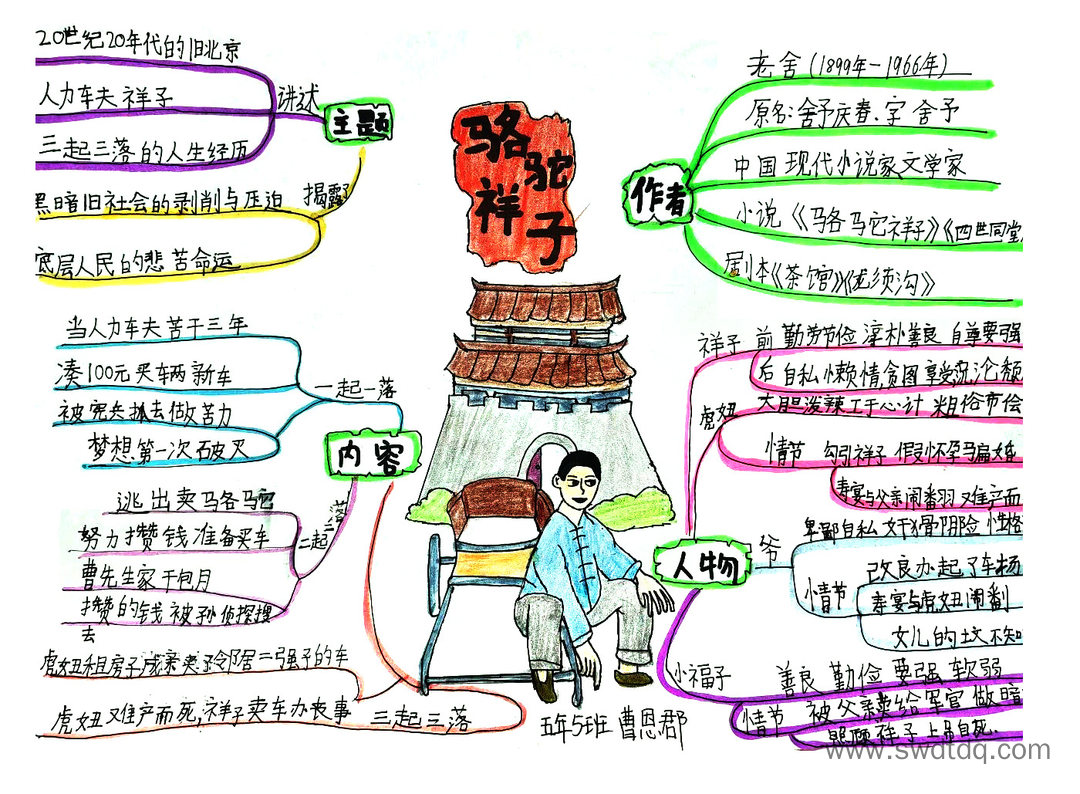 骆驼祥子
主题
讲述
20世纪20年代的旧北京
人力车夫祥子
三起三落的人生经历
揭露
黑暗旧社会的剥削与压迫
底层人民的悲苦命运
作者
老舍(1899年-1966年)
原名:舍予庆春.字舍予
中国现代小说家文学家
小说《骆驼祥子》《四世同堂
剧本《茶馆》《龙须沟》
内容
一起一落
当人力车夫苦干三年
凑100元买车两新车
被宪夫抓去做苦力
梦想第一次破灭
二起二落
逃出卖骆驼
努力攒钱准备买车
曹先生家干包月
攒的钱被孙侦探搜
去
三起三落
虎妞租房子成亲买了邻居二强子的车
虎妞难产而死,祥子卖车办丧事
人物
祥子 前 勤劳节俭 淳朴善良 自尊要强
后 自私 懒惰,贪图享受
虎妞 大胆泼辣工于心计 粗俗市侩
情节 勾引祥子 假怀孕骗婚
寿宴与父亲闹翻 难产而
爷
卑鄙自私 奸猾阴险 性格
情节
改良办起了车场
寿宴与虎妞闹翻
女儿的坟不知
小福子
善良 勤俭 要强 软弱
情节 被父亲卖给军官 做暗
照顾祥子上吊自死.
五年5班 曹恩郡
www.swdtdq.com